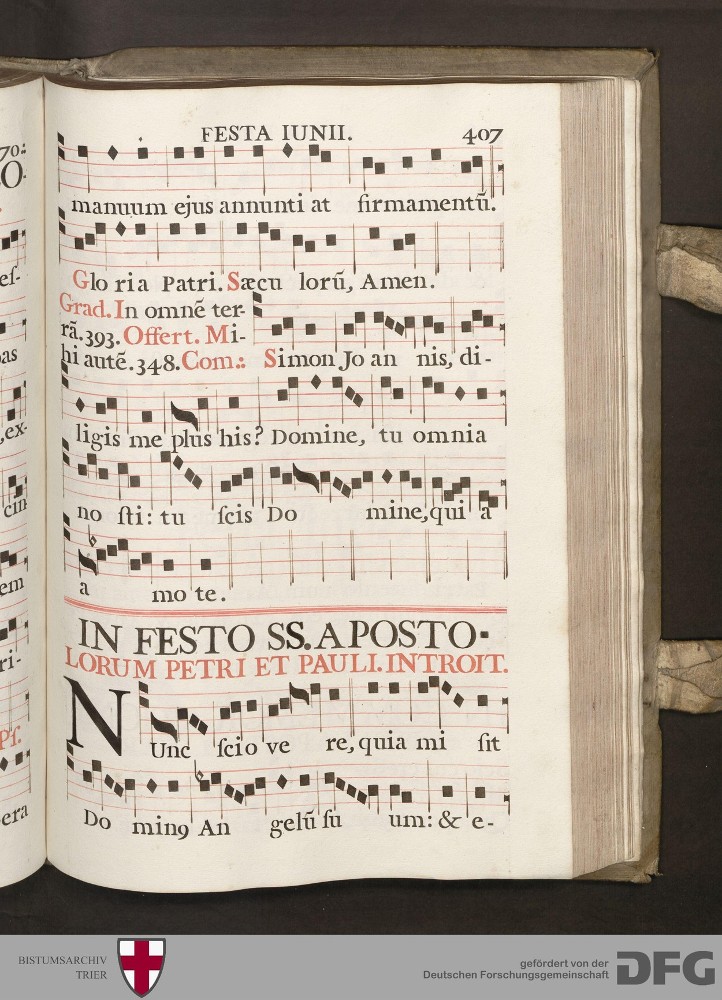 70.:
O.
ef-
as
,ex-
cin
em
ri-
Ps.
era
FESTA IUNII. 407
manuum ejus annunti at firmamentū.
Glo ria Patri. Sæcu lorū, Amen.
Grad. In omnē ter-
rā.393. Offert. Mi-
hi autē.348. Com.: Simon Jo an nis, di-
ligis me plus his? Domine, tu omnia
no sti: tu scis Do mine, qui a
a mo te.
IN FESTO SS. APOSTO-
LORUM PETRI ET PAULI. INTROIT.
NUnc scio ve re, quia mi sit
Do minꝯ An gelū su um: & e-
BISTUMSARCHIV
TRIER
gefördert von der
Deutschen Forschungsgemeinschaft
DFG